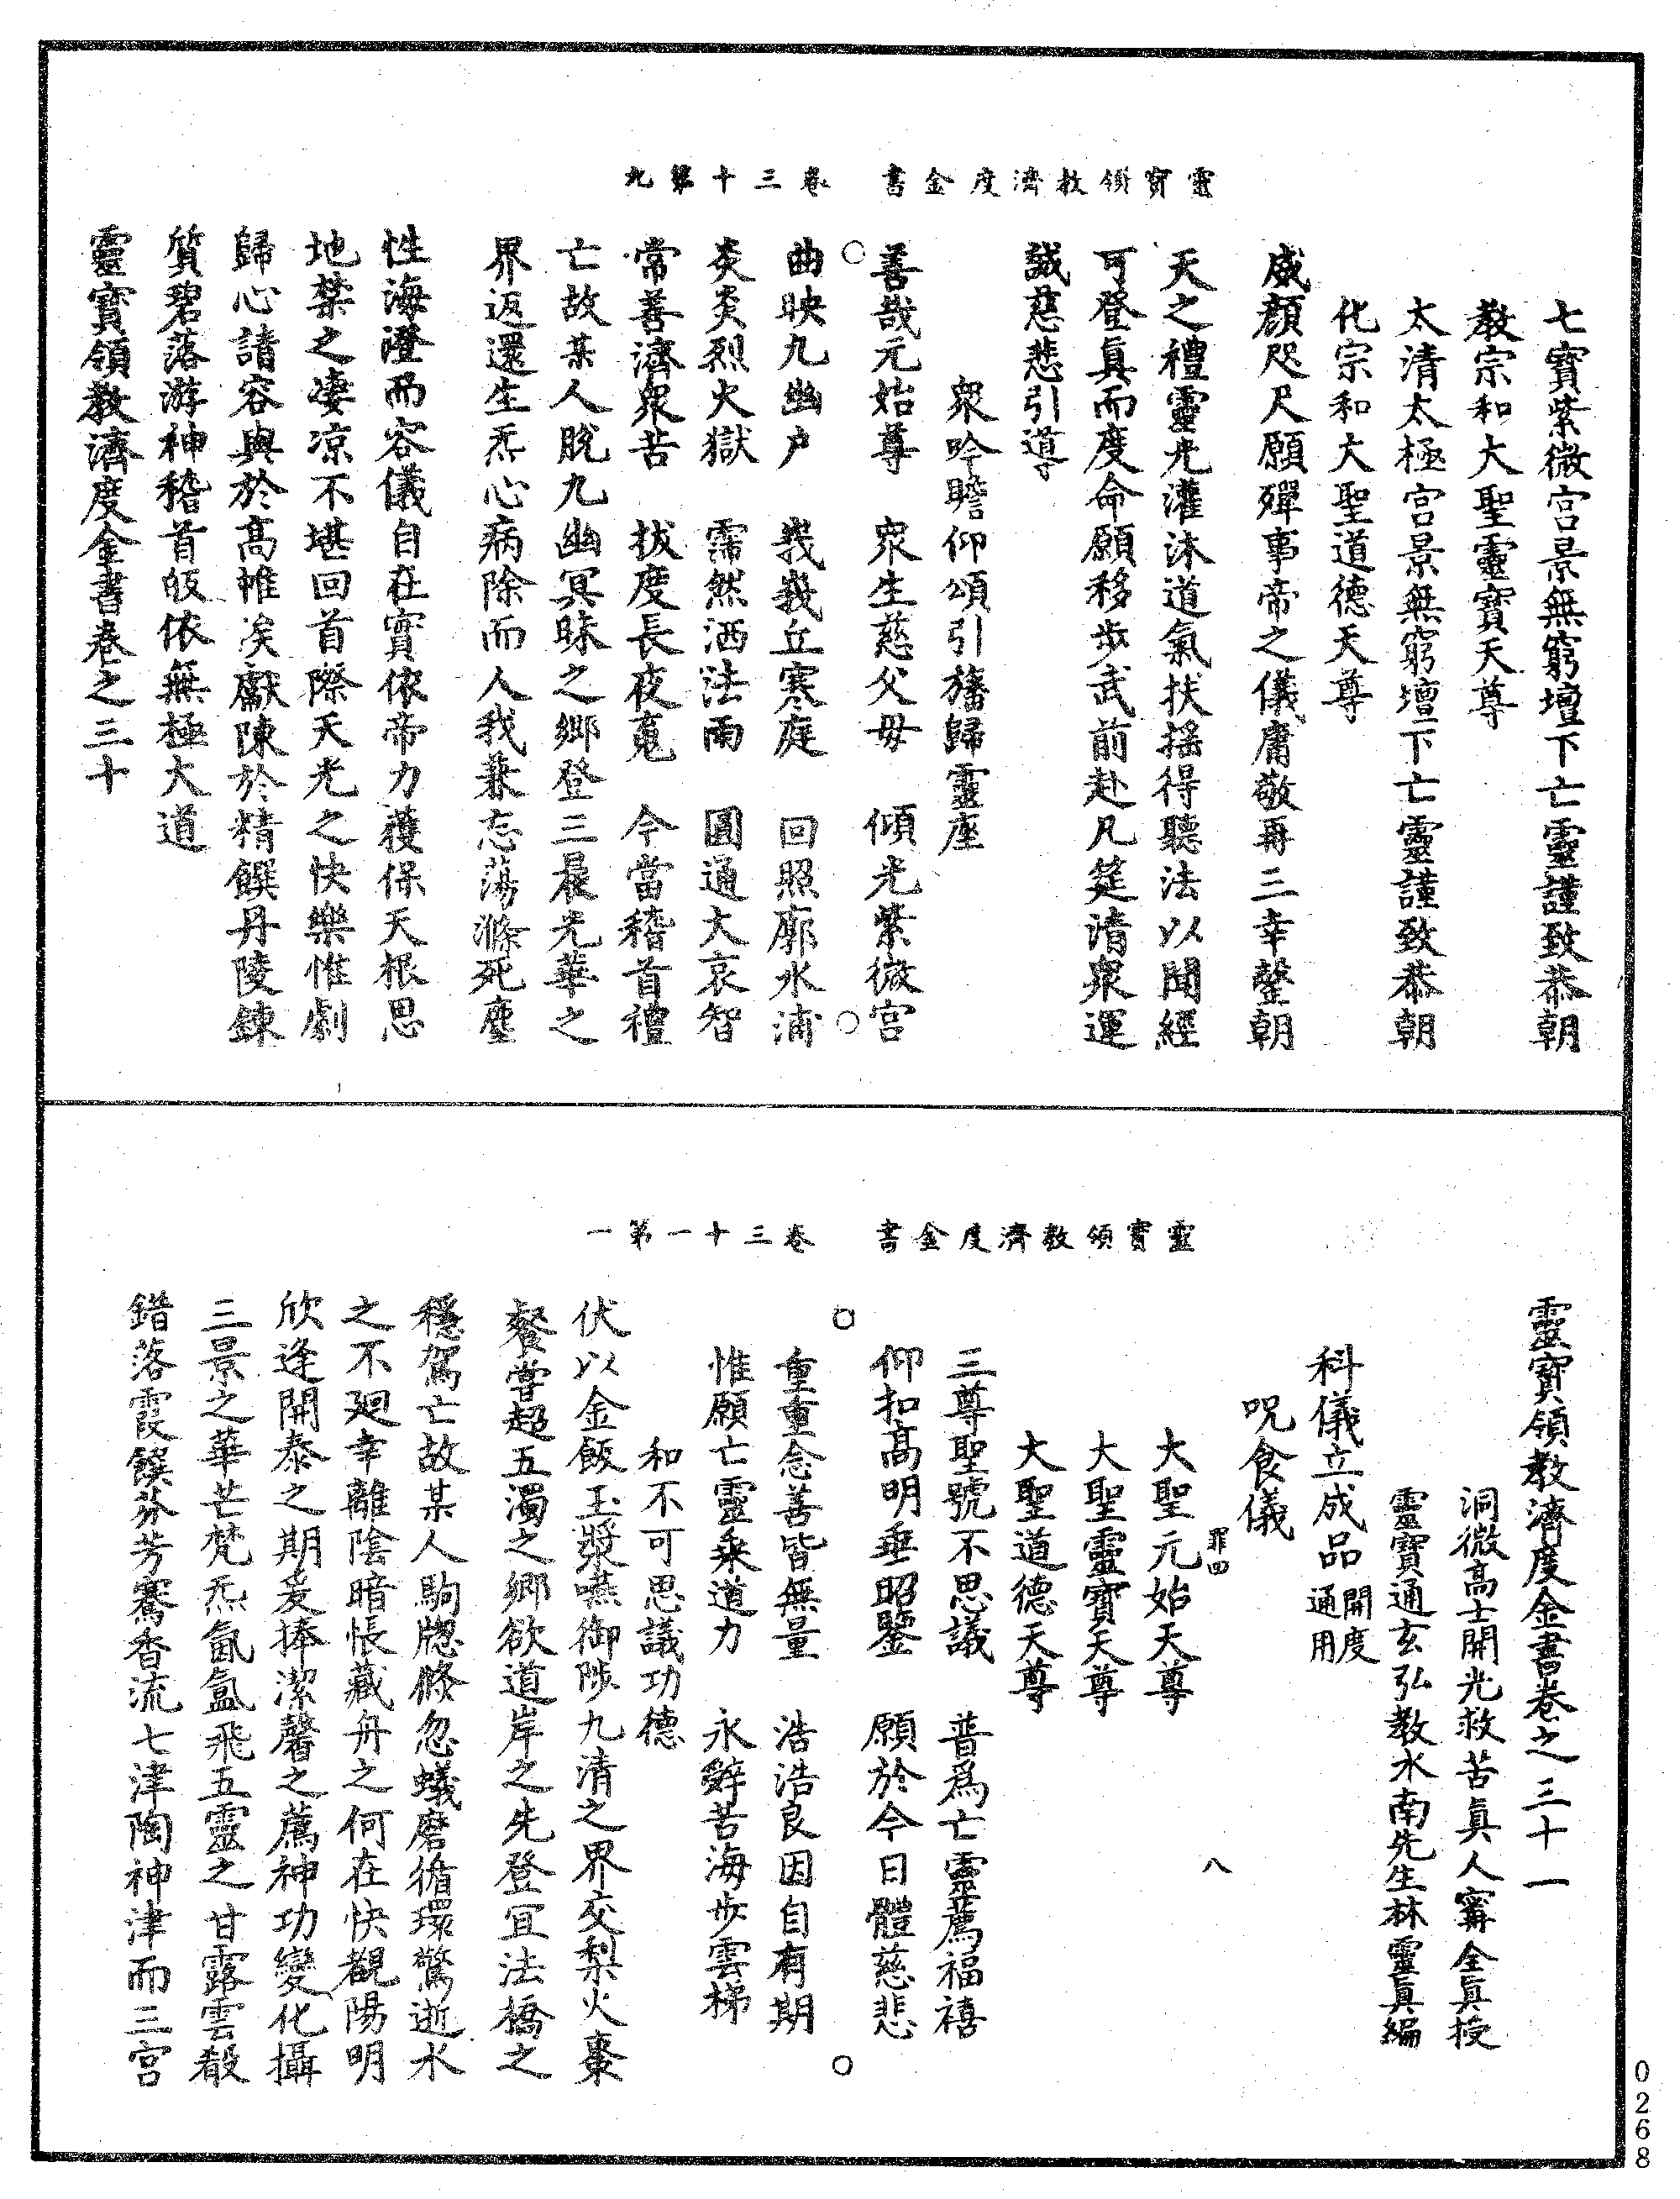 靈寶領教濟度金書 卷三十第九
七寶紫微宮景無窮壇下亡靈謹致恭朝
教宗和大聖靈寶天尊
太清太極宮景無窮壇下亡靈謹致恭朝
化宗和大聖道德天尊
威顏咫尺願殫事帝之儀庸敬再三幸罄朝
天之禮靈光灌沐道氣扶搖得聽法以聞經
可登眞而度命願移步武前赴凡筵清衆運
誠慈悲引導
衆吟瞻仰頌引旛歸靈座
善哉元始尊 衆生慈父母 傾光紫微宮
曲映九幽戶 峩峩丘寒庭 回照廓水浦
炎炎烈火獄 霈然洒法雨 圓通大哀智
常善濟衆苦 拔度長夜䰟 今當稽首禮
亡故某人脫九幽冥昧之鄉登三晨光華之
界返還生炁心病除而人我兼忘蕩滌死塵
性海澄而容儀自在實依帝力獲保天根思
地禁之凄凉不堪回首際天光之快樂惟劇
歸心請容與於高帷俟獻陳於精饌丹陵鍊
質碧落游神稽首皈依無極大道
靈寶領教濟度金書卷之三十
靈寶領教濟度金書 卷三十一第一
靈寶領教濟度金書卷之三十一
洞微高士開光救苦眞人甯全眞授
靈寶通玄弘教水南先生林靈眞編
科儀立成品 開度通用
呪食儀
罪四 八
大聖元始天尊
大聖靈寶天尊
大聖道德天尊
三尊聖號不思議 普爲亡靈薦福禧
仰扣高明垂昭鑒 願於今日體慈悲
重重念善皆無量 浩浩良因自有期
惟願亡靈乘道力 永辭苦海步雲梯
和不可思議功德
伏以金飯玉漿嚥御陟九清之界交梨火棗
餐嘗超五濁之鄉欲道岸之先登宜法橋之
穩駕亡故某人駒牕倏忽蟻磨循環驚逝水
之不廻幸離陰暗悵藏舟之何在快覩陽明
欣逢開泰之期爰捧潔馨之薦神功變化攝
三景之華芒梵炁氤氳飛五靈之甘露雲殽
錯落霞饌芬芳騫香流七津陶神津而三宮
0268